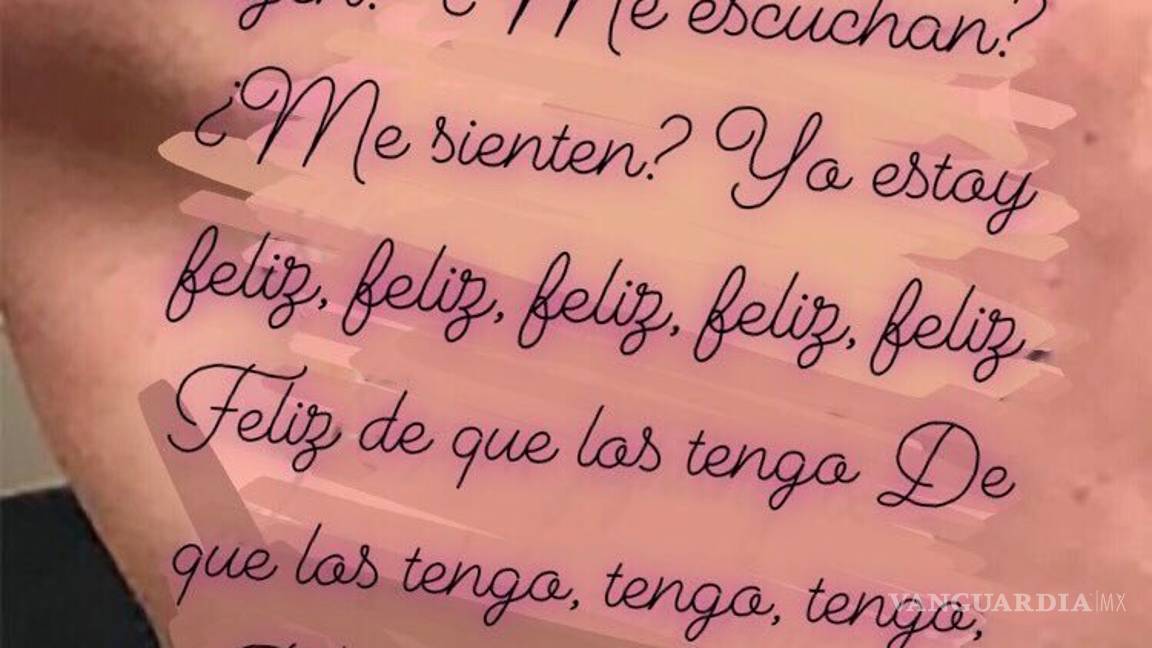 ¿Me escuchan?
¿Me sienten? Yo estoy
feliz, feliz, feliz, feliz, feliz,
Feliz de que los tengo De
que los tengo, tengo, tengo,
VANGUARDIA|MX